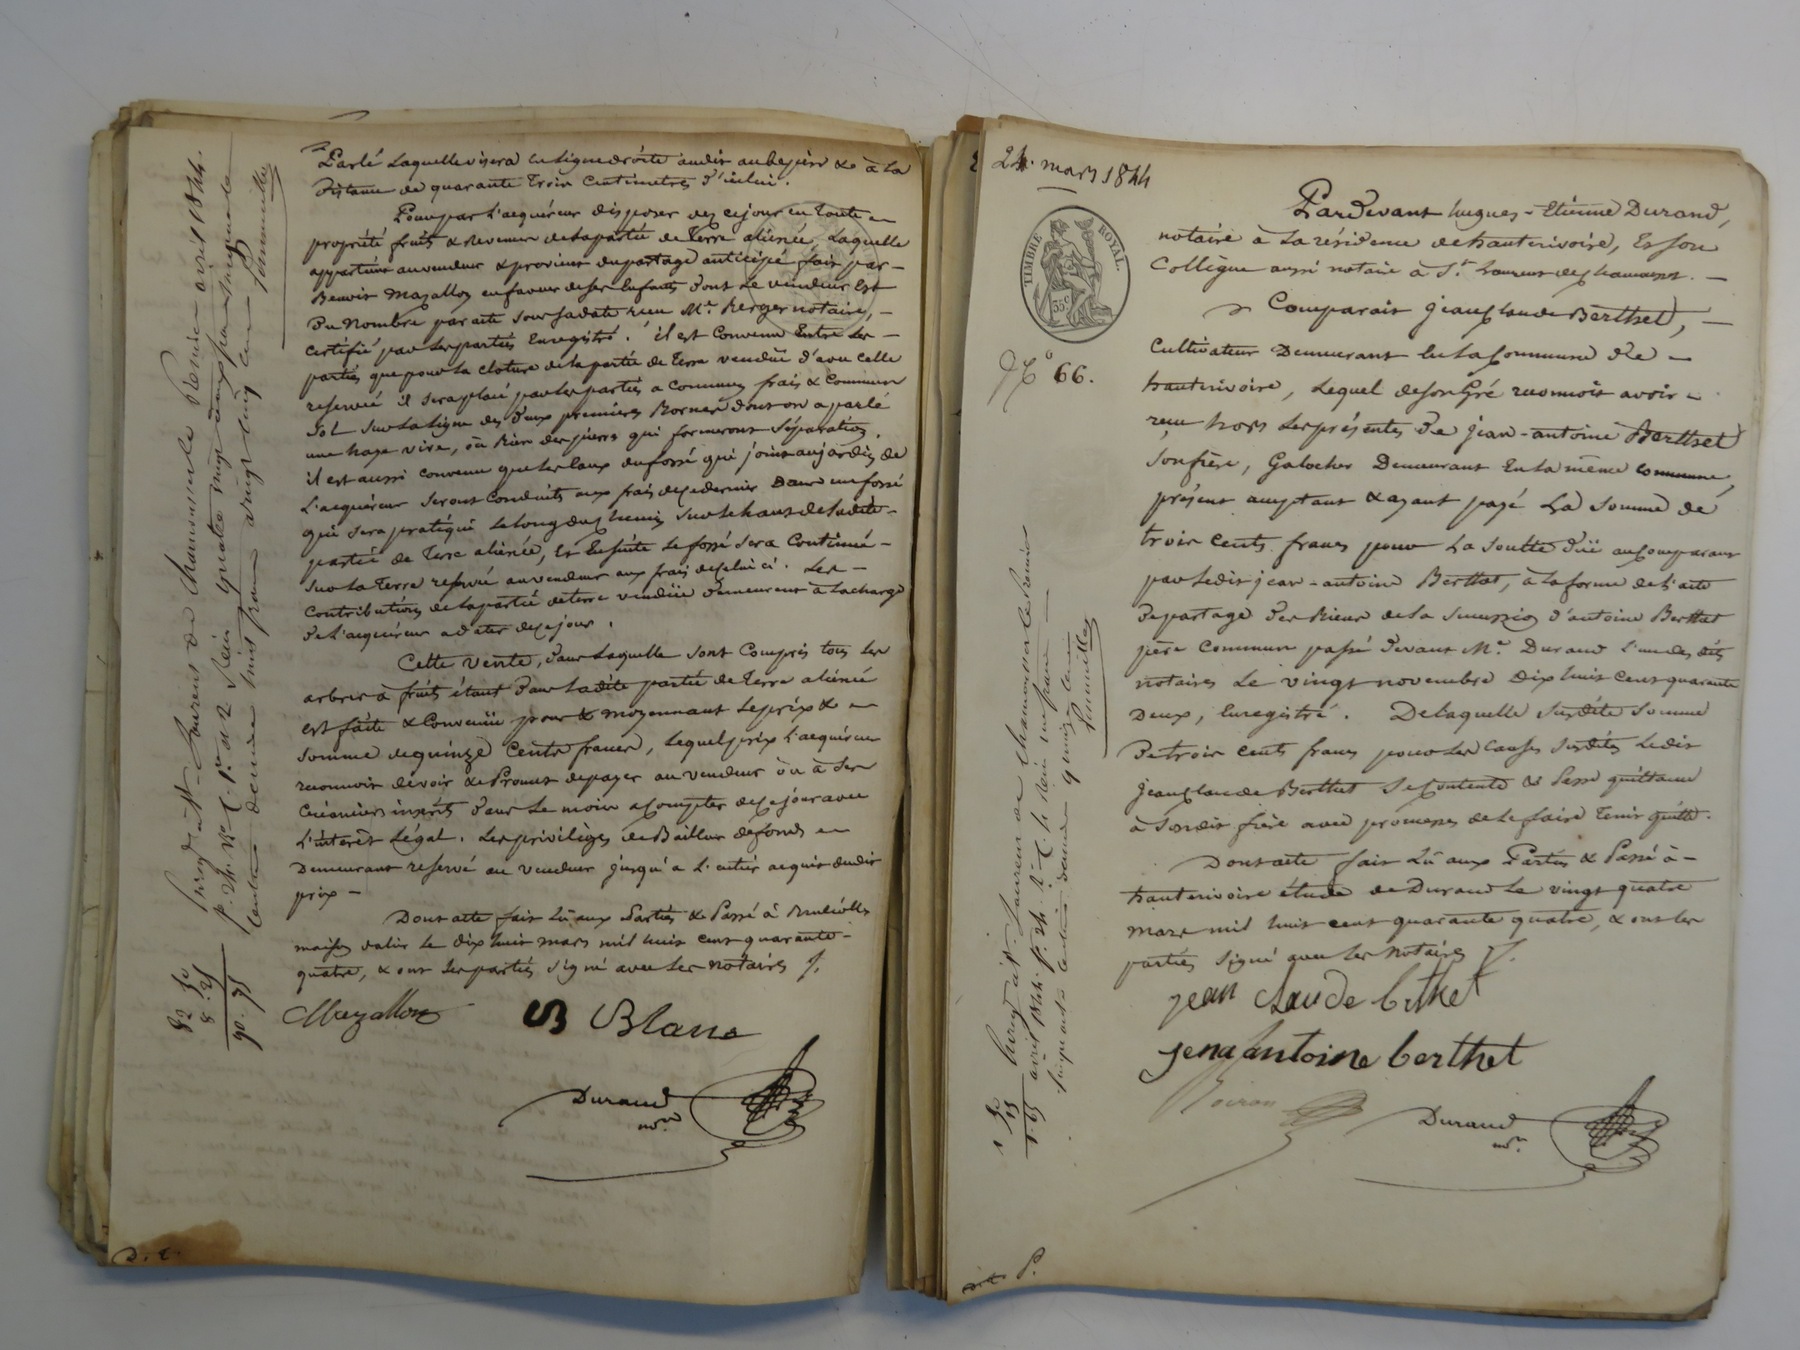 Parlé laquelle visera en ligne droite audit aubepin & à la
Distance de quarante trois centimetres d'icelui.
Pour par l'acquéreur disposer dez ce jour en toute
propriété fruits & Revenus de la partie de Terre aliénée, laquelle
appartient au vendeur & provient du partage anticipé fait par
Benoit Mazallon en faveur de ses Enfants dont le vendeur est
Du Nombre par acte sous sa date reçu Me. Berger notaire,
certifié par les parties Enregistré. il est Convenu Entre les
parties que pour la cloture de la partie de Terre vendüe d'avec celle
reservée il sera placé par les parties a communs frais & Commun
Sol sur la ligne des deux premieres Bornes dont on a parlé
une haye vive, où Bien des pierres qui formeront Séparation.
il est aussi convenu que les Eaux du fossé qui joint au jardin de
L'acquéreur seront Conduites aux frais de ce dernier Dans un fossé
qui sera pratiqué le long du chemin sur le haut de ladite
partie de Terre aliénée, Et Ensuite le fossé sera Continué
sur la Terre reservée au vendeur aux frais de celui ci. Les
Contributions de la partie de terre vendüe demeurent à la charge
de l'acquéreur a dater de ce jour.
Cette vente, dans laquelle sont Compris tous les
arbres à fruits étant dans ladite partie de Terre aliénée
est faite & Convenüe pour & moyennant le prix &
somme de quinze Cents francs, lequel prix l'acquéreur
reconnoit devoir & Promet de payer au vendeur où à ses
Créanciers inscrits dans le mois a compter de ce jour avec
L'intéret Légal. Les privilèges de Bailleur de fonds
Demeurant reservé au vendeur jusqu'a l'entier acquit dudit
prix
Dont acte fait Lû aux Parties & Passé à Brullioles
maison valin le dix huit mars mil huit cent quarante
quatre, & ont les parties signé avec les notaires
Mazallon
B Blanc
Durand
nore.
Enregd. à St. Laurent de Chamousset le Premier avril 1844.
82 50
8 25
90 75
D. E.
24. mars 1844
TIMBRE ROYAL.
35 c
No 66.
Pardevant hugues-Etienne Durand,
notaire à la résidence de hauterivoire, Et son
Collègue aussi notaire à St. Laurent de Chamousset.
Comparait jean Claude Berthet,
Cultivateur Demeurant En la Commune de
hauterivoire, Lequel de son Gré reconnoit avoir
reçu hors les présentes de jean-antoine Berthet
son frère, Galocher Demeurant En la même commune,
présent acceptant & ayant payé La somme de
trois cents francs pour La soulte düe au Comparant
par ledit jean-antoine Berthet, à la forme de l'acte
de partage des Biens de la succession d'antoine Berthet
père Commun passé devant Me. Durand l'un des dits
notaires le vingt novembre Dix huit cent quarante
Deux, Enregistré. De laquelle susdite somme
De trois cents francs pour les causes susdites ledit
jean Claude Berthet se Contente & Passe quittance
à son dit frère avec promesses de le faire Tenir quitte.
Dont acte fait Lû aux Parties & Passé à
hauterivoire étude de Durand le vingt quatre
mars mil huit cent quarante quatre, & ont les
parties signé avec les notaires
jean claude bethet
jena antoine berthet
Durand
nore.
Enregd. à St. Laurent de Chamousset le Premier
avril 1844.
1 50
15
1 65